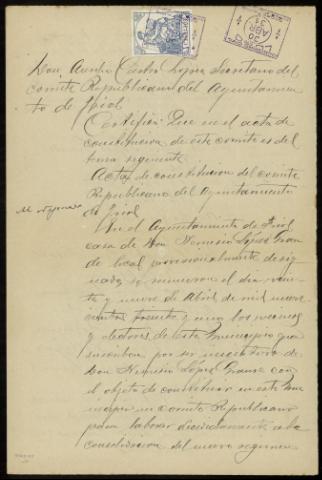 Don Aurelio Castro López Secretario del
comite Republicano del Ayuntamien
to de Friol
Certifico: Que en el acta de
constitucion de este comite es del
tenor siguiente
Acta de constitucion del comite
Republicano del Ayuntamiento
de Friol
En el Ayuntamiento de Friol
casa de Don Nemesio López
de local provisionalmente desig
nado se reunieron el dia vein
te y nueve de Abril de mil nueve
cientos treinta y uno los vecinos
y electores de este Municipio que
suscriben por si
Don Nemesio López con
el objeto de constituir en este Mu
nicipio un Comite Republicano
para laborar decididamente a la
consolidacion del nuevo regimen